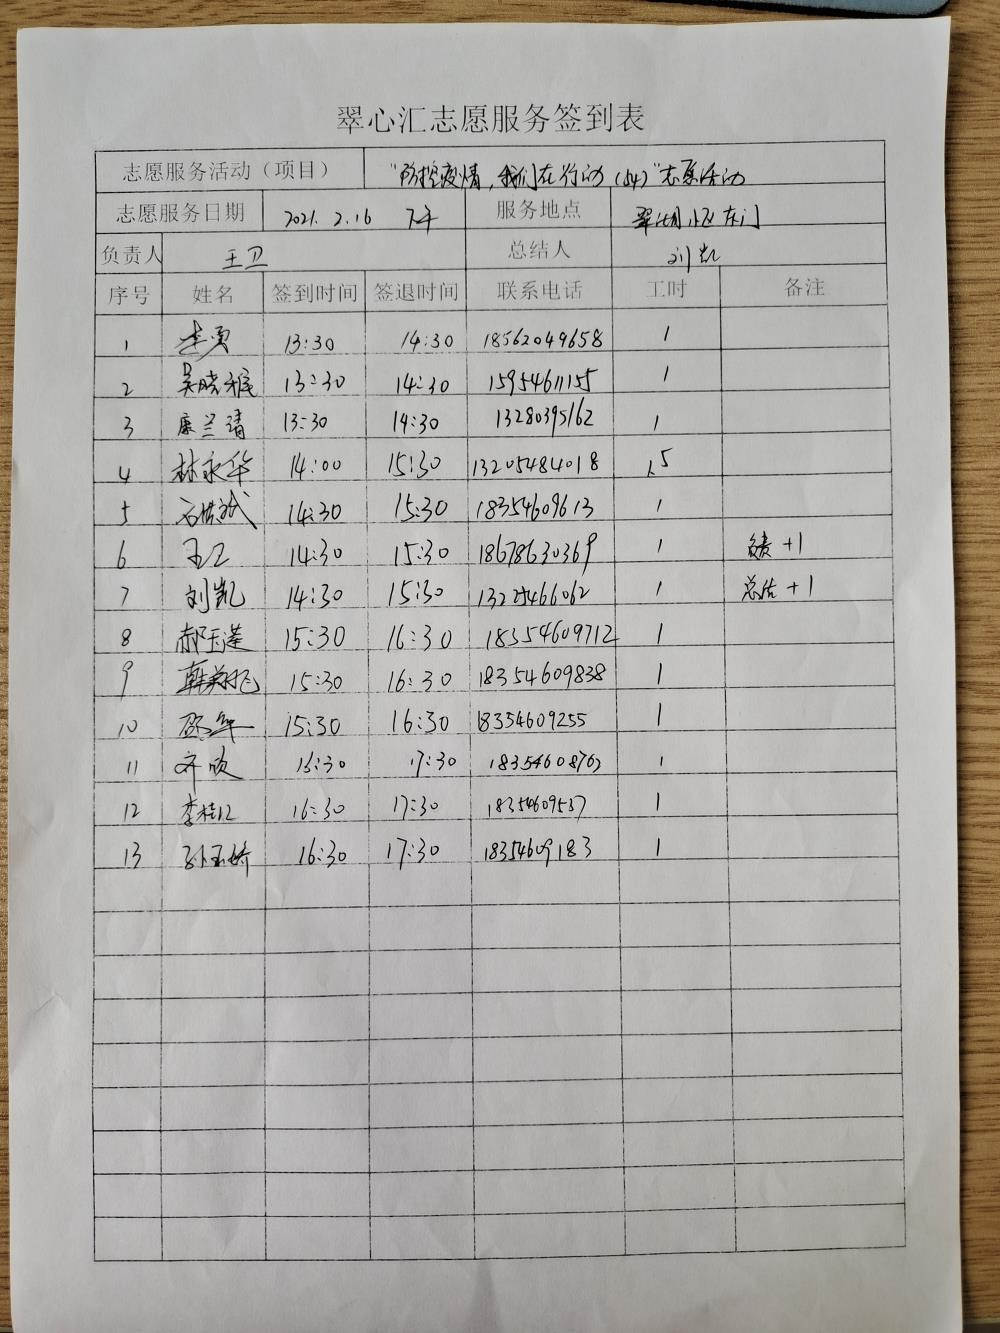 翠心汇志愿服务签到表
志愿服务活动（项目） “防控疫情，我们在行动（54）”志愿活动
志愿服务日期 2021.2.16 下午 服务地点 翠湖小区东门
负责人 王卫 总结人 刘凯
序号 姓名 签到时间 签退时间 联系电话 工时 备注
1 李勇 13:30 14:30 18562049658 1
2 吴晓雅 13:30 14:30 15954611155 1
3 康兰清 13:30 14:30 13280395162 1
4 林永华 14:00 15:30 13205484018 1.5
5 14:30 15:30 18354609613 1
6 王卫 14:30 15:30 18678630369 1 负责+1
7 刘凯 14:30 15:30 13225466062 1 总结+1
8 郝玉莲 15:30 16:30 18354609712 1
9 韩翔飞 15:30 16:30 18354609838 1
10 邵军 15:30 16:30 18354609255 1
11 齐欣 17:30 1
12 李桂江 16:30 17:30 18354609537 1
13 孙玉娇 16:30 17:30 18354609183 1